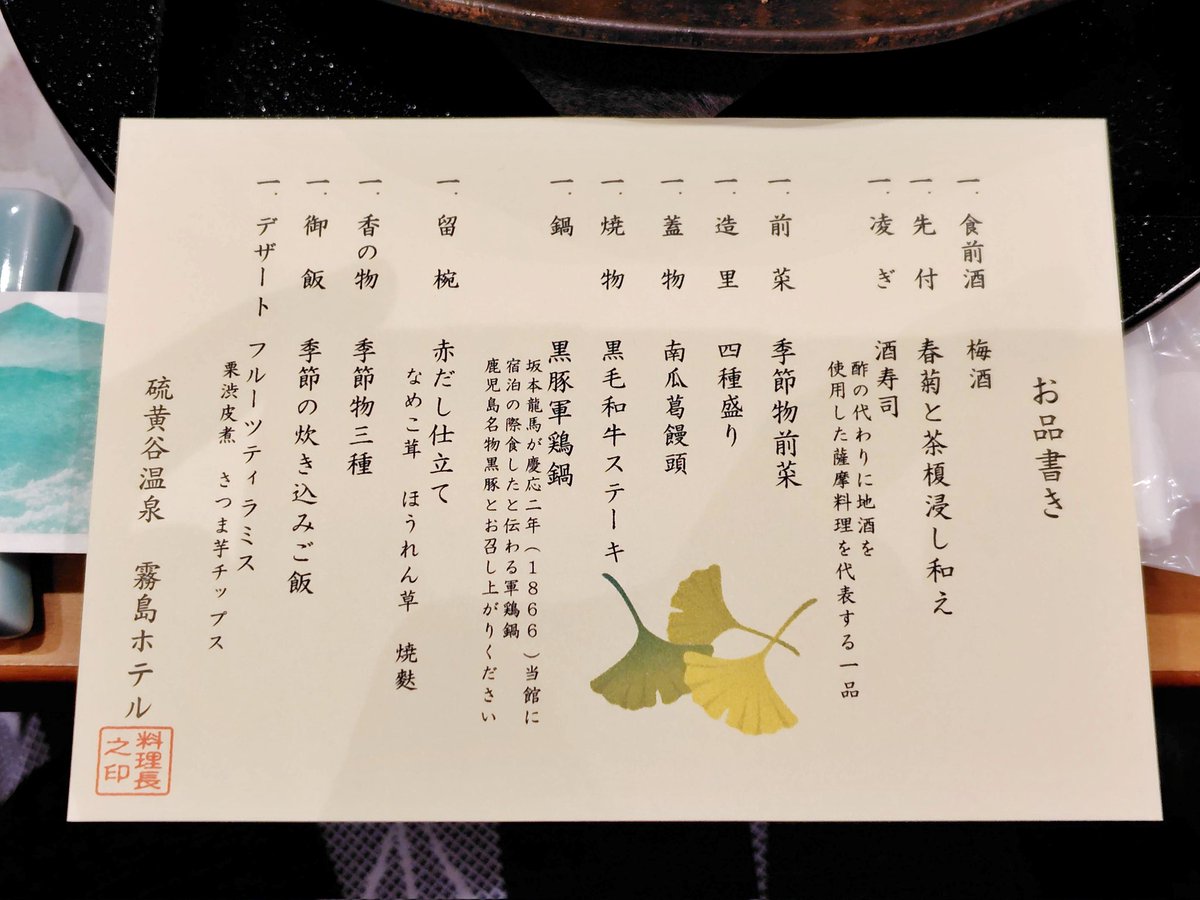 お品書き
一. 食前酒 梅酒
一. 先付 春菊と茶榎浸し和え
一. 凌ぎ 酒寿司
酢の代わりに地酒を
使用した薩摩料理を代表する一品
一. 前菜 季節物前菜
一. 造里 四種盛り
一. 蓋物 南瓜葛饅頭
一. 焼物 黒毛和牛ステーキ
一. 鍋 黒豚軍鶏鍋
坂本龍馬が慶応二年(1866)当館に
宿泊の際食したと伝わる軍鶏鍋
鹿児島名物黒豚とお召し上がりください
一. 留椀 赤だし仕立て
なめこ茸 ほうれん草 焼麩
一. 香の物 季節物三種
一. 御飯 季節の炊き込みご飯
一. デザート フルーツティラミス
栗渋皮煮 さつま芋チップス
硫黄谷温泉 霧島ホテル
料理長
之印